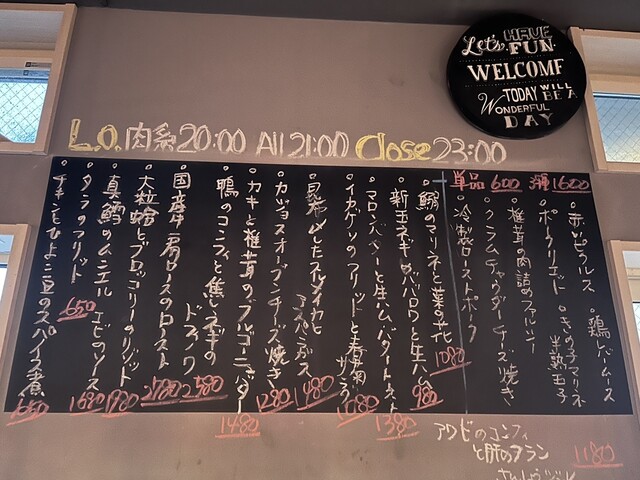 Let's HAVE
FUN
WELCOME
TODAY WILL
BE A
WONDERFUL
DAY
L.O. 肉系20:00 All 21:00 Close 23:00
単品 600 3種 1600
鶏レバームース
ポークリエット
きのこマリネ
半熟玉子
椎茸の肉詰めファルシー
クラムチャウダーチーズ焼き
冷製ローストポーク
鰯のマリネと菜の花 1080
新玉ネギのババロアと生ハム 980
マロンパンツァーと生ハム
1380
イカゲソのフリットと春菊サラダ 1080
昆布〆したヤリイカと
1480
カジョスオーブンチーズ焼き 1280
カキと椎茸のブルゴーニュバター 1480
鴨のコンフィと焦しネギの
2580
国産牛肩ロースのロースト 2780
大粒蛤とブロッコリーのリゾット 1980
真鱈のムニエル エビのソース 1680
タラのフリット 650
チキンとひよこ豆のスパイス煮 650
アワビのコンフィ
と肝のフラン
1180